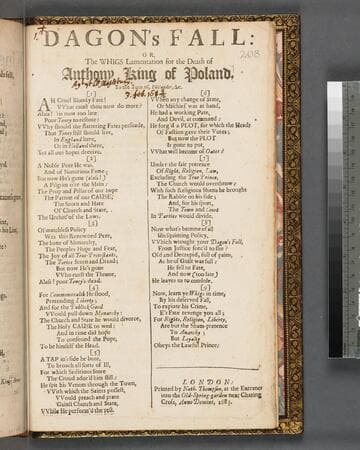 203
DAGON's FALL:
OR,
The WHIGS Lamentation for the Death of
Anthony King of Poland.
To the Tune of, Philander, &c.
[1]
AH Cruel Bloody Fate!
VVhat canst thou now do more?
Alas! 'tis now too late
Poor Tony to restore:
VVhy should the flattering Fates persuade,
That Tony still should live,
In England here,
Or in Holland there,
Yet all our hopes deceive.
[2]
A Noble Peer he was,
And of Notorious Fame;
But now he's gone (alas!)
A Pilgrim o're the Main:
The Prop and Pillar of our hope
The Patron of our CAUSE;
The Scorn and Hate
Of Church and State,
The Urchin of the Laws.
[3]
Of matchless Policy
Was this Renowned Peer,
The bane of Monarchy,
The Peoples Hope and Fear,
The Joy of all True-Protestants,
The Tories Scorn and Dread;
But now he's gone
VVho curst the Throne,
Alas! poor Tony's dead.
[4]
For Commonwealth He stood,
Pretending Liberty;
And for the Publick Good
VVould pull down Monarchy:
The Church and State he would divorce,
The Holy CAUSE to wed;
And in time did hope
To confound the Pope,
To be himself the Head.
[5]
A TAP in's side he bore,
To broach all sorts of Ill,
For which Seditious Store
The Croud ador'd him still:
He spit his Venom through the Town,
VVith which the Saints possest,
VVould preach and prate
'Gainst Church and State,
VVhile He perform'd the rest.
[6]
VVhen any change of State,
Or Mischief was at hand,
He had a working Pate,
And Devil, at command:
He forg'd a PLOT, for which the Heads
Of Faction gave their Votes;
But now the PLOT
Is gone to pot,
VVhat will become of Oates?
[7]
Under the fair pretence
Of Right, Religion, Law,
Excluding the True Prince,
The Church would overthrow:
With such Religious Shams he brought
The Rabble on his side;
And, for his sport,
The Town and Court
In Parties would divide.
[8]
Now what's become of all
His squinting Policy,
VVhich wrought your Dagon's Fall,
From Justice forc'd to flie?
Old and Decrepid, full of pains,
As he of Guilt was full;
He fell to Fate,
And now (too late)
He leaves us to condole.
[9]
Now, learn ye Whigs in time,
By his deserved Fall,
To expiate his Crime,
E're Fate revenge you all;
For Rights, Religion, Liberty,
Are but the Sham-pretence
To Anarchy;
But Loyalty
Obeys the Lawful Prince.
LONDON:
Printed by Nath. Thompson, at the Entrance
into the Old-Spring-garden near Charing
Cross, Anno Domini, 1683.